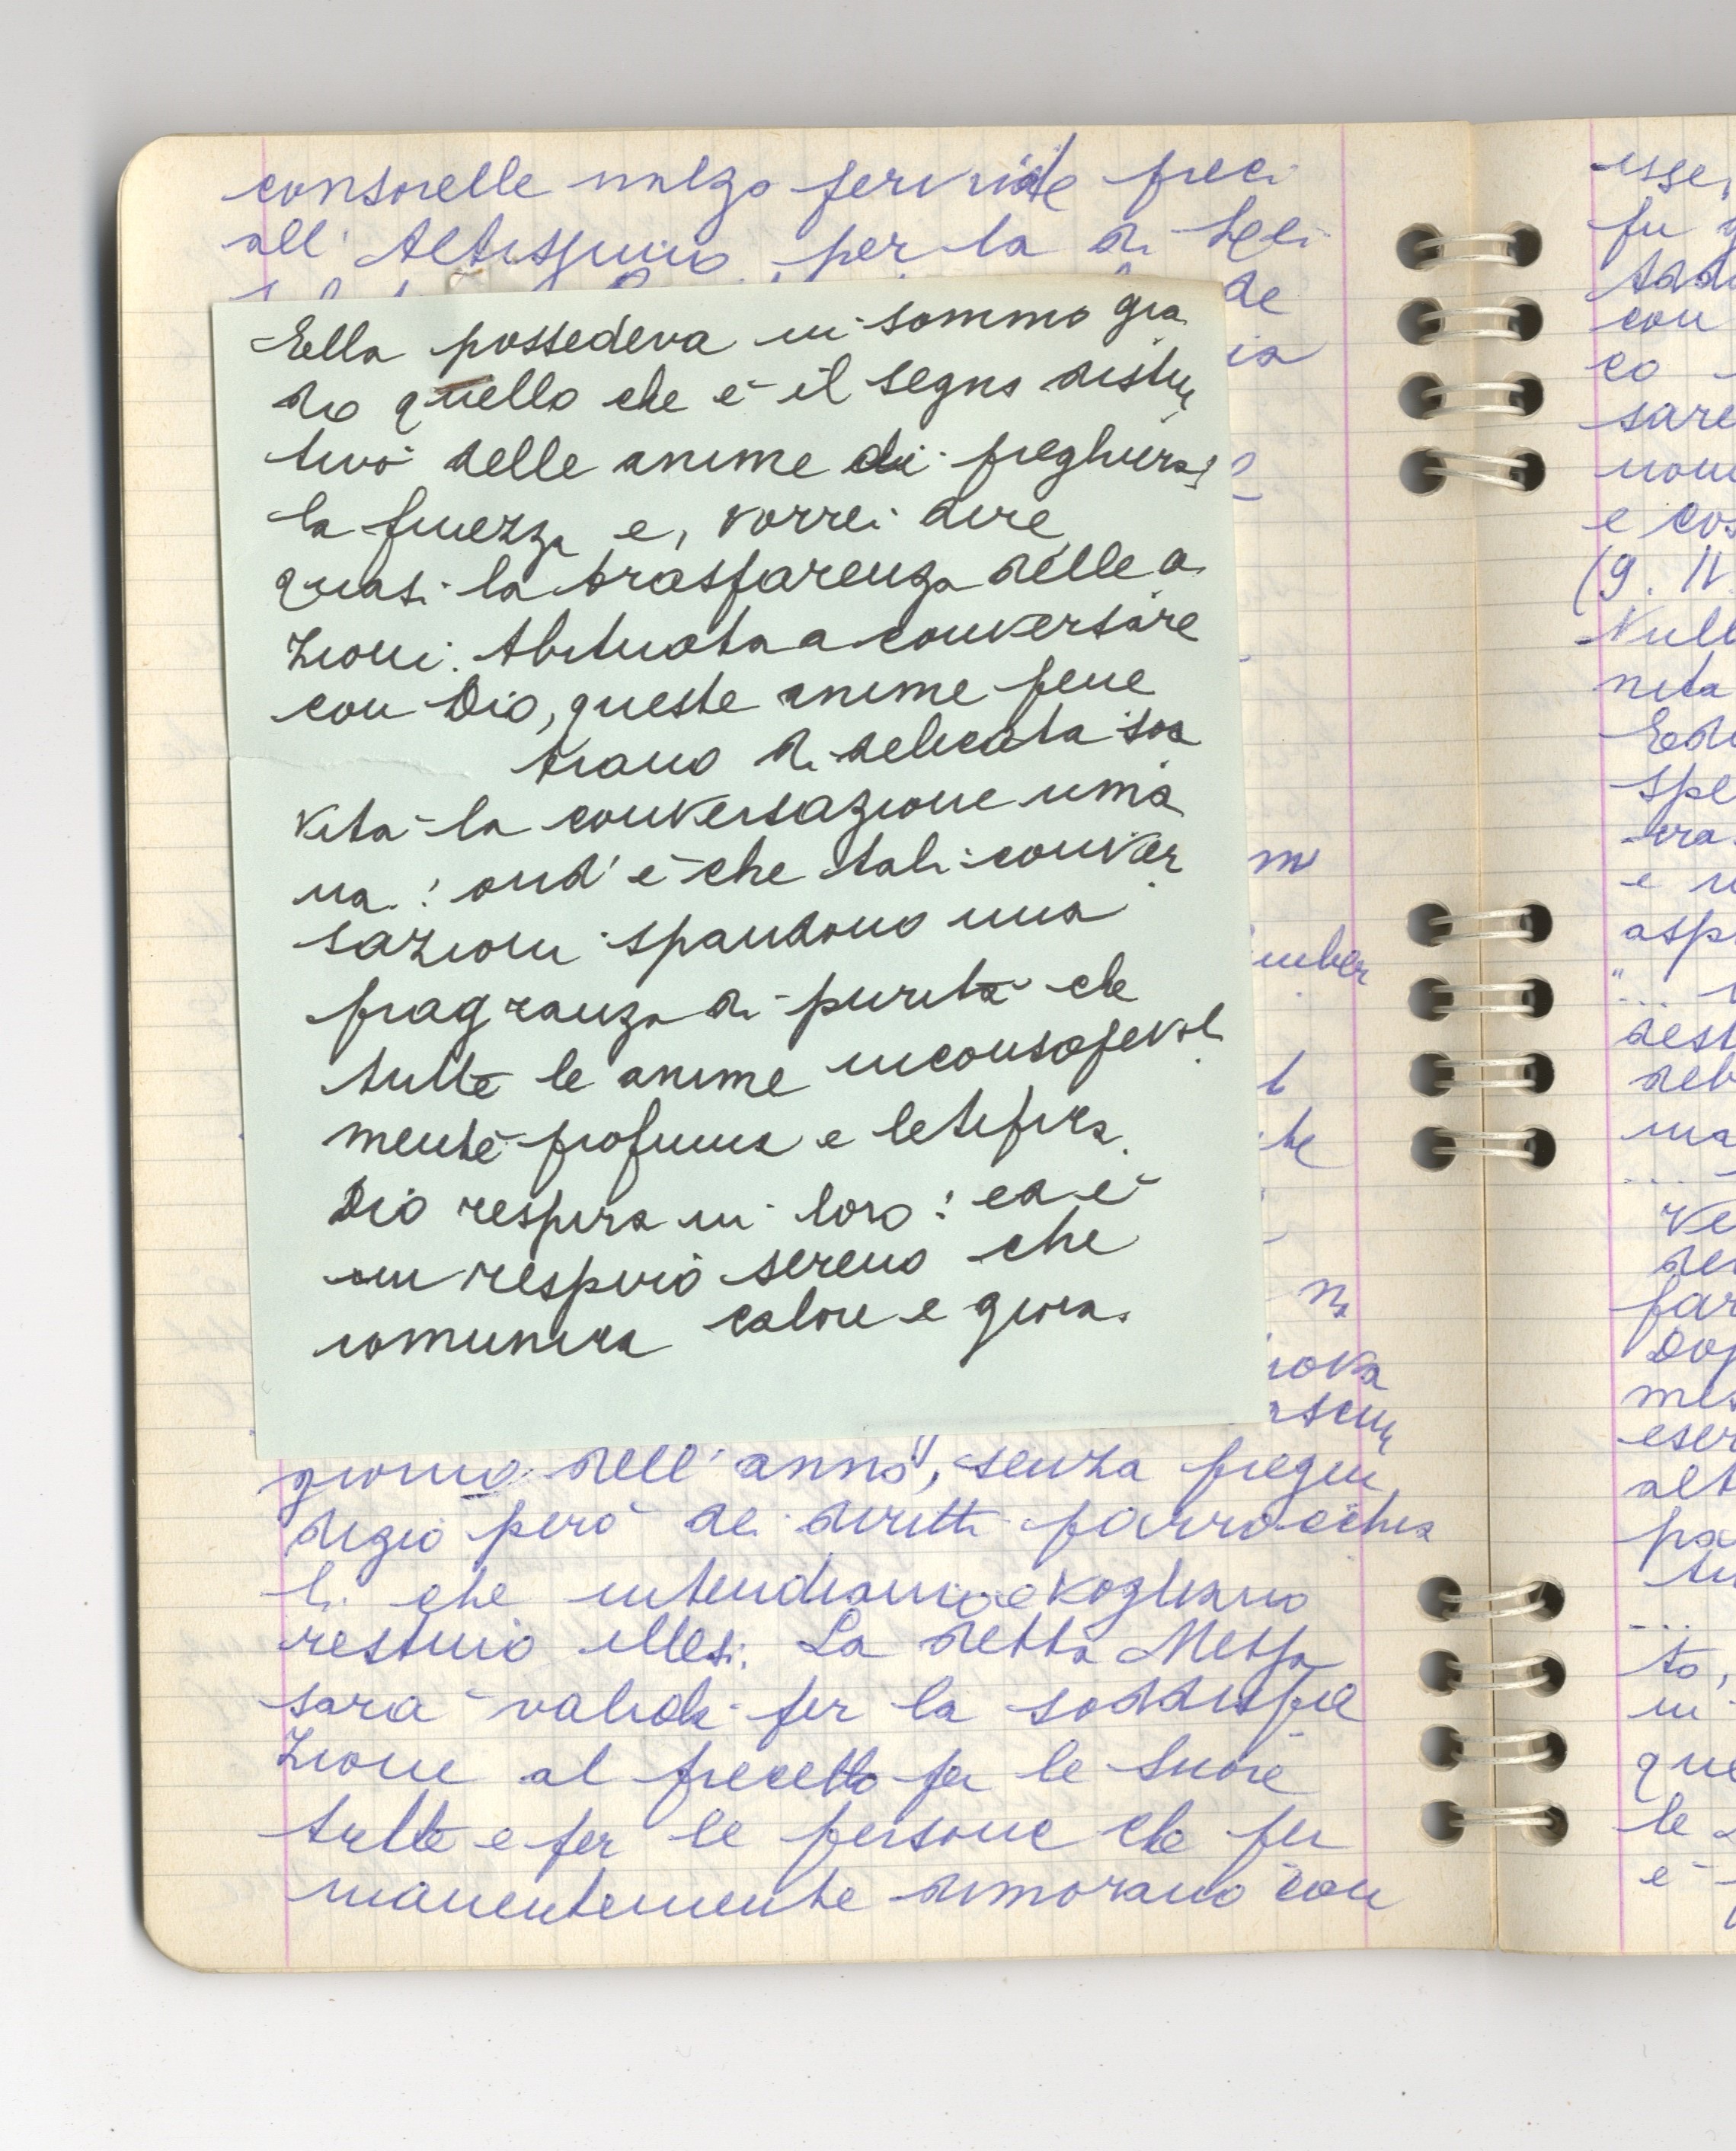 consorelle innalzo fervide preci
all'Altissimo per la di Lei
de
ia
Ella possedeva in sommo gra
do quello che è il segno distin
tivo delle anime di preghiera:
la finezza e, vorrei dire,
quasi la trasparenza delle a
zioni. Abituata a conversare
con Dio, queste anime pene
trano di delicata soa
vità la conversazione uma
na: ond'è che tali conver
sazioni spandono una
fragranza di purità che
tutte le anime inconsapevol
mente profuma e letifica.
Dio respira in loro: ed è
un respiro sereno che
comunica calore e gioia.
giorno dell'anno, senza pregiu
dizio però dei diritti parrocchia
li che intendiamo e vogliamo
restino illesi. La detta Messa
sarà valida per la soddisfa
zione al precetto per le Suore
tutte e per le persone che per
manentemente dimorano con
esse,
fu
con
co
sare
e cos
(9. IV.
Null
neta
spe
e
asp
"...
dest
deb
ma
...
Ve
der
par
Dop
mes
eser
alt
pa
...
to,
in
que
le
è